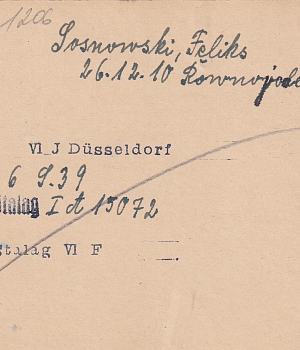 1206
Sosnowski, Feliks
26.12.10 Równopole
VI J Düsseldorf
6 9.39
talag I A 15072
talag VI F